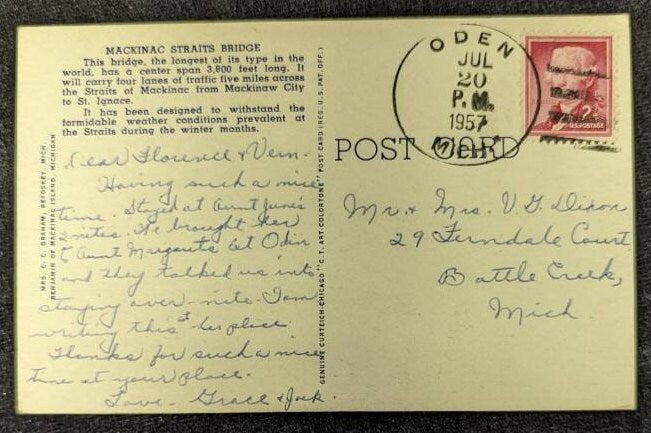 MACKINAC STRAITS BRIDGE
This bridge, the longest of its type in the
world, has a center span 3,800 feet long. It
will carry four lanes of traffic five miles across
the Straits of Mackinac from Mackinaw City
to St. Ignace.
It has been designed to withstand the
formidable weather conditions prevalent at
the Straits during the winter months.
Dear Florence & Vern-
Having such a nice
time. Stayed at Aunt June's
2 nites. We brought her
to Aunt Margarets at Odin
and they talked us into
staying over-nite. I am
writing this at her place.
Thanks for such a nice
time at your place.
Love- Grace & Jack.
MRS. C. C. GRAHAM, PETOSKEY, MICH.
BENJAMIN OF MACKINAC ISLAND, MICHIGAN
GENUINE CURTEICH-CHICAGO "C. T. ART-COLORTONE" POST CARD (REG. U. S. PAT. OFF.)
POST CARD
ODEN
JUL
20
P. M.
1957
MICH.
2¢
U.S. POSTAGE
Mr. & Mrs. V. G. Dixon
29 Ferndale Court
Battle Creek,
Mich.